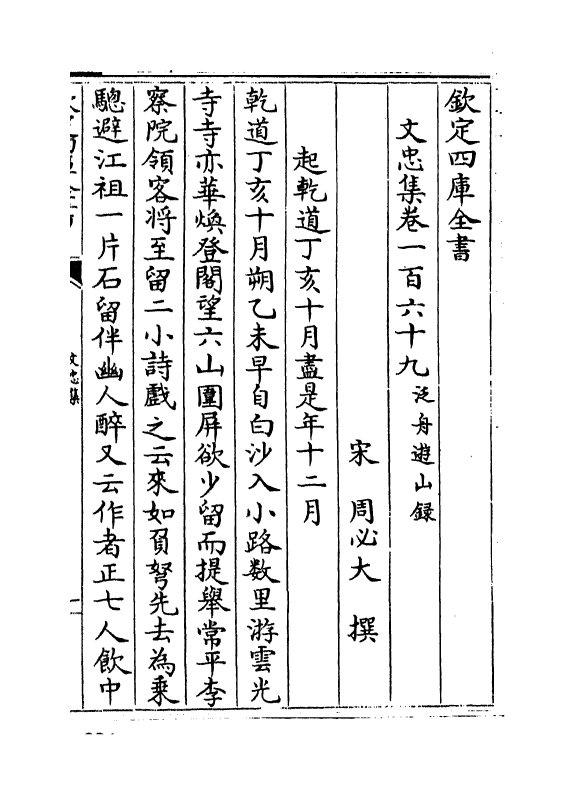 欽定四庫全書
文忠集卷一百六十九 泛舟遊山録
宋 周必大 撰
起乾道丁亥十月盡是年十二月
乾道丁亥十月朔乙未早自白沙入小路数里游雲光
寺寺亦華煥登閣望六山圍屏欲少留而提舉常平李
察院領客将至留二小詩戲之云來如負弩先去為乗
驄避江祖一片石留伴幽人醉又云作者正七人飲中
文忠集
一